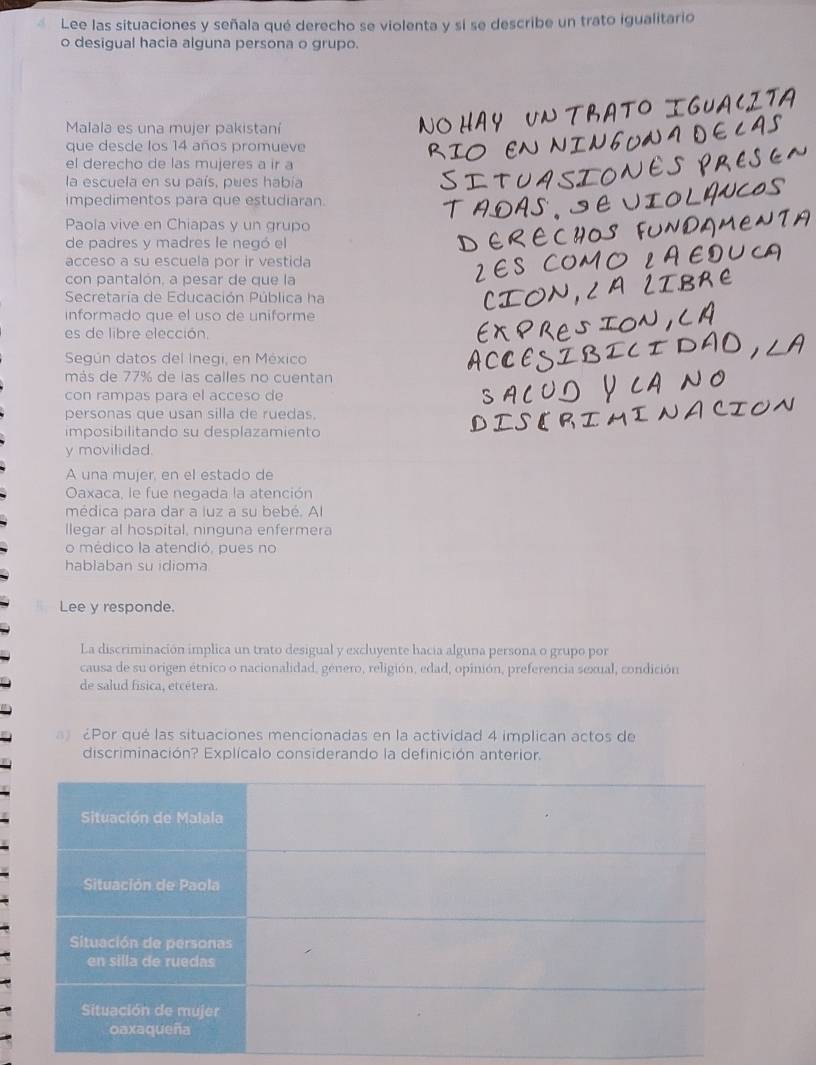 4 Lee las situaciones y señala qué derecho se violenta y si se describe un trato igualitario
o desigual hacia alguna persona o grupo.
Malala es una mujer pakistaní
que desde los 14 años promueve
el derecho de las mujeres a ir a
la escuela en su país, pues había
impedimentos para que estudiaran.
Paola vive en Chiapas y un grupo
de padres y madres le negó el
acceso a su escuela por ir vestida
con pantalón, a pesar de que la
Secretaría de Educación Pública ha
informado que el uso de uniforme
es de libre elección.
Según datos del Inegi, en México
más de 77% de las calles no cuentan
con rampas para el acceso de
personas que usan silla de ruedas,
imposibilitando su desplazamiento
y movilidad.
A una mujer, en el estado de
Oaxaca, le fue negada la atención
médica para dar a luz a su bebé. Al
llegar al hospital, ninguna enfermera
o médico la atendió, pues no
hablaban su idioma
NO HAY UN TRATO IGUALITA
RIO EN NINGUNA DE LAS
SITUASIONES PRESEN
TADAS. SE VIOLANCOS
DERECHOS FUNDAMENTA
LES COMO LA EDUCA
CION, LA LIBRE
EXPRESION, LA
ACCESIBILIDAD, LA
SALUD Y LA NO
DISCRIMINACION
5. Lee y responde.
La discriminación implica un trato desigual y excluyente hacia alguna persona o grupo por
causa de su origen étnico o nacionalidad, género, religión, edad, opinión, preferencia sexual, condición
de salud física, etcétera.
a) ¿Por qué las situaciones mencionadas en la actividad 4 implican actos de
discriminación? Explícalo considerando la definición anterior.
Situación de Malala
Situación de Paola
Situación de personas
en silla de ruedas
Situación de mujer
oaxaqueña